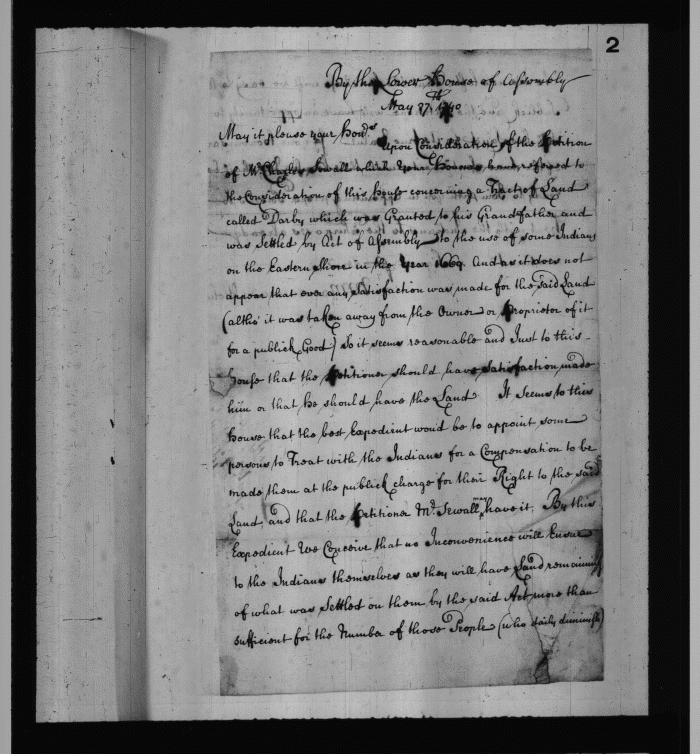 2
By the Lower House of Assembly
May 27th 1740
May it please your Honrs
Upon Consideration of the Petition
of Mr Charles Sewall which Your Honours have referred to
the Consideration of this house concerning a Tract of Land
called Darby which was Granted to his Grandfather and
was Settled by Act of Assembly to the use of some Indians
on the Eastern Shore in the Year 1669. And as it does not
appear that ever any Satisfaction was made for the said Land
(altho' it was taken away from the Owner or Proprietor of it
for a publick Good) So it seems reasonable and Just to this
house that the Petitioner should have Satisfaction made
him or that he should have the Land It Seems to this
house that the best Expedient would be to appoint some
persons to Treat with the Indians for a Compensation to be
made them at the publick charge for their Right to the said
Land and that the Petitioner Mr Sewall may have it. By this
Expedient We Conceive that no Inconvenience will Ensue
to the Indians themselves as they will have Land remaining
of what was Settled on them by the said Act more than
sufficient for the Number of those People (who daily diminish)